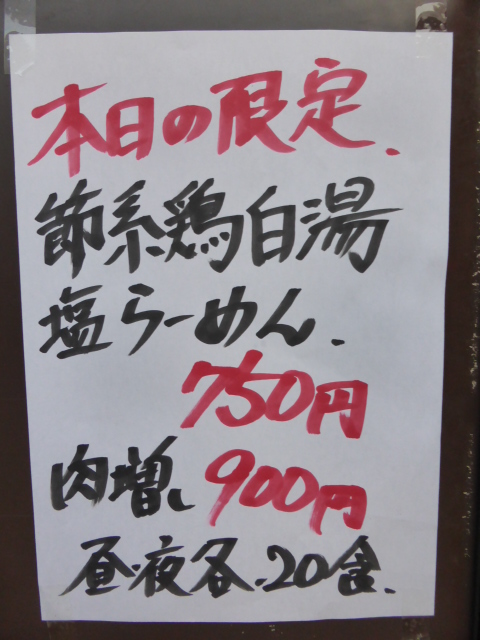 本日の限定.
節系鶏白湯
塩らーめん.
750円
肉増し 900円
昼・夜各.20食.